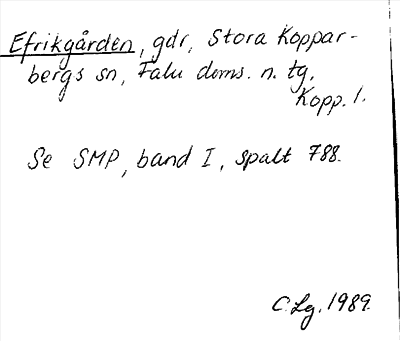 Efrikgården, gdr, Stora Koppar-
bergs sn, Falu doms. n. tg,
Kopp. l.
Se SMP, band I, spalt 788.
C.Lg. 1989.